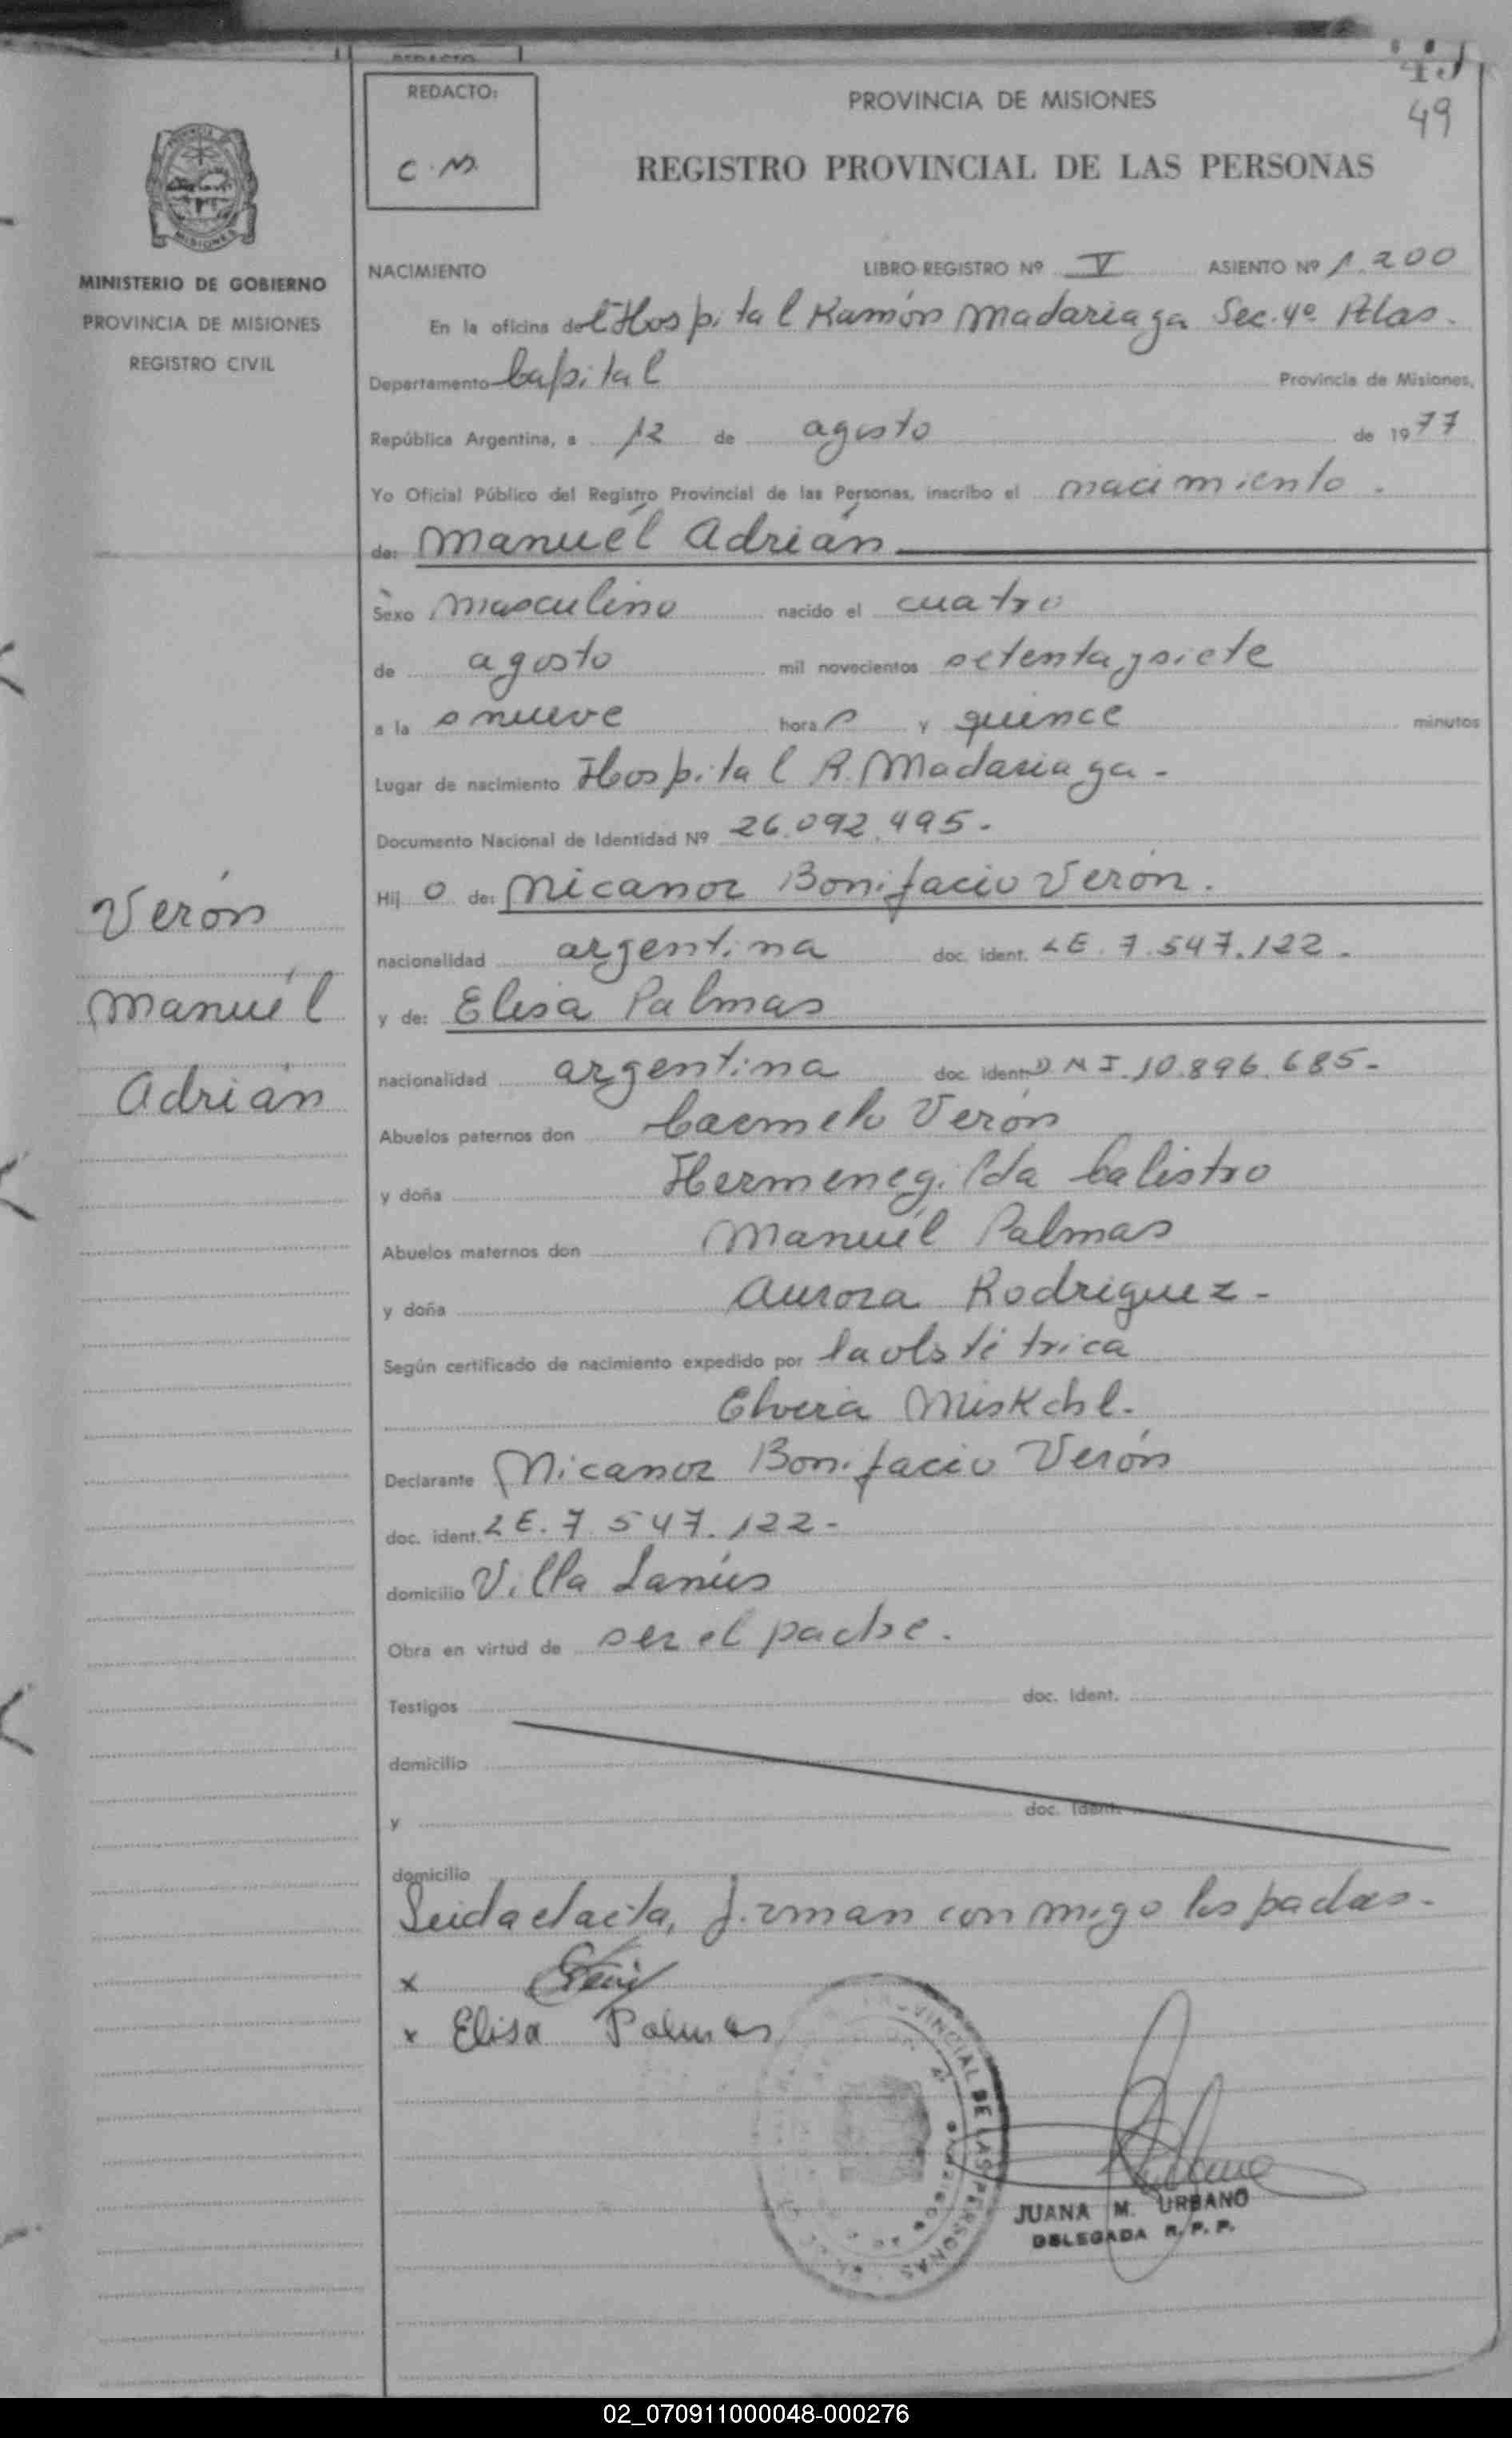 REDACTO:
C.M.
PROVINCIA DE MISIONES
49
REGISTRO PROVINCIAL DE LAS PERSONAS
MISIONES
MINISTERIO DE GOBIERNO
PROVINCIA DE MISIONES
REGISTRO CIVIL
NACIMIENTO LIBRO REGISTRO Nº V ASIENTO Nº 1.200
En la oficina del Hospital Ramón Madariaga Sec. 4º Pdas.
Departamento Capital Provincia de Misiones,
República Argentina, a 12 de agosto de 1977
Yo Oficial Público del Registro Provincial de las Personas, inscribo el nacimiento.
de: Manuél Adrián
Sexo masculino nacido el cuatro
de agosto mil novecientos setenta y siete
a la s nueve hora s y quince minutos
Lugar de nacimiento Hospital R. Madariaga -
Documento Nacional de Identidad Nº 26.092.495.
Hij o de: Nicanor Bonifacio Verón.
nacionalidad argentina doc. ident. LE. 7.547.122.
y de: Elisa Palmas
nacionalidad argentina doc. ident. DNI. 10.896.685-
Abuelos paternos don Carmelo Verón
y doña Hermenegilda Calistro
Abuelos maternos don Manuél Palmas
y doña Aurora Rodriguez -
Según certificado de nacimiento expedido por la obstétrica
Elvira
Declarante Nicanor Bonifacio Verón
doc. ident. LE. 7.547.122-
domicilio Villa Lanús
Obra en virtud de ser el padre.
Testigos doc. Ident.
domicilio
y doc. Ident.
domicilio
Leida el acta, firman conmigo los padres.
x
x Elisa Palmas
Verón
Manuél
Adrián
PROVINCIAL DE LAS PERSONAS
JUANA M. URBANO
DELEGADA R. P. P.
02_070911000048-000276